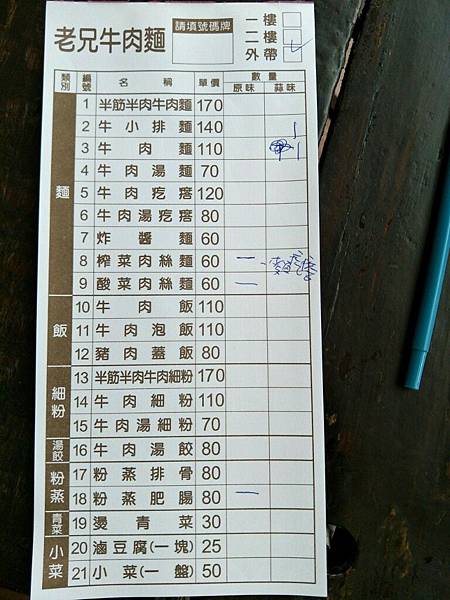 老兄牛肉麵 請填號碼牌 一樓
二樓
外帶 ✓
類別 編號 名稱 單價 數量
原味 蒜味
麵
1 半筋半肉牛肉麵 170
2 牛小排麵 140
3 牛肉麵 110
4 牛肉湯麵 70
5 牛肉疙瘩 120
6 牛肉湯疙瘩 80
7 炸醬麵 60
8 榨菜肉絲麵 60 一
9 酸菜肉絲麵 60 一
飯
10 牛肉飯 110
11 牛肉泡飯 110
12 豬肉蓋飯 80
細粉
13 半筋半肉牛肉細粉 170
14 牛肉細粉 110
15 牛肉湯細粉 70
湯餃
16 牛肉湯餃 80
粉蒸
17 粉蒸排骨 80
18 粉蒸肥腸 80 一
青菜
19 燙青菜 30
小菜
20 滷豆腐(一塊) 25
21 小菜(一盤) 50